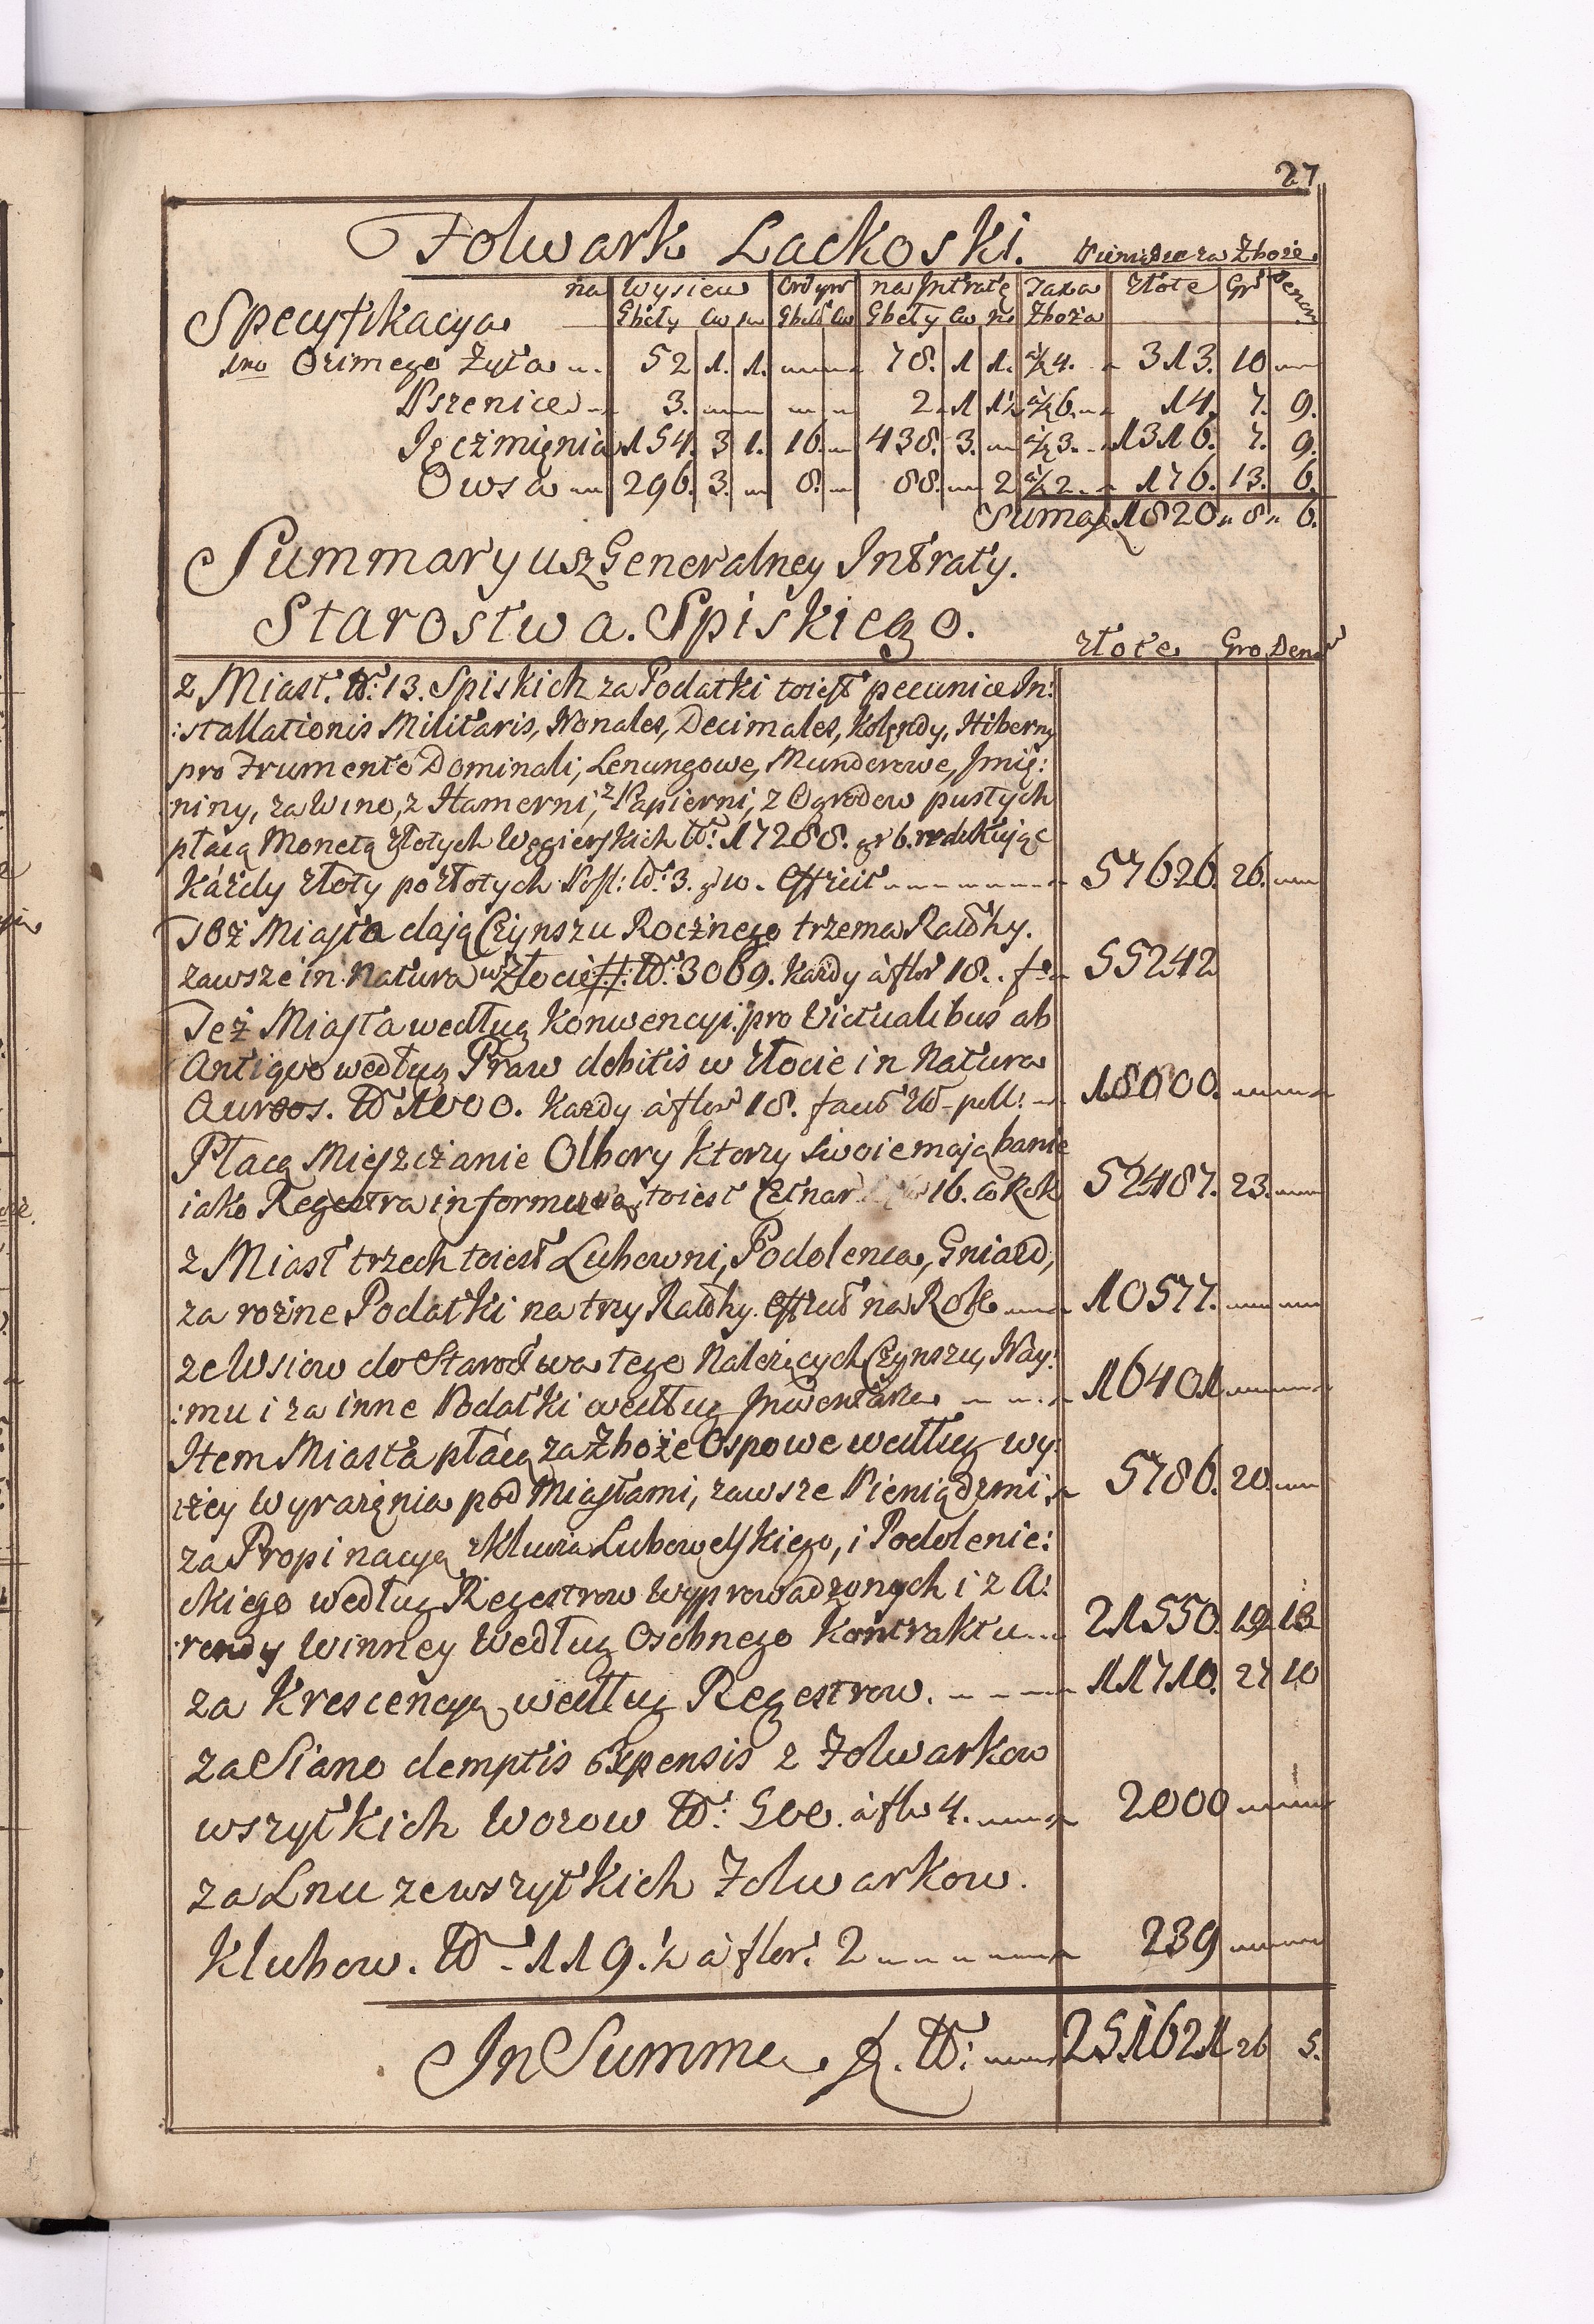 27
Folwark Lackoski. Pieniądze za Zboże.
Specyfikacya na Wysiew Ordyn na Intratę Taxa Złote Gr Denar
Gbeły Cw Gbeł Cw Gbeły Cw Zboża
1mo Ozimego Żyta 52 1. 1. 78. 1 1. a 4. 313. 10
Pszenice 3. 2. 1 1½ a 6. 14. 7. 9.
Jęczmięnia 154. 3 1. 16. 438. 3. a 3. 1316. 7. 9.
Owsa 296. 3. 8. 88. 2 a 2. 176. 13. 6.
Suma 1820. 8. 6.
Summaryusz Generalney Intraty.
Starostwa. Spiskiego.
Złote Gro Dena
z Miast. 13. Spiskich za Podatki toiest pecuniae In:
:stallationis Militaris, Nonales, Decimales, Kolędy, Hiberny
pro Frumento Dominali, Lenungowe, Munderowe, Jmię:
:niny, za Wino, z Hamerni, z Papierni, z Ogrodow pustych
płacą Monetą Złotych Węgierskich 17288. gr 6. redukując
Każdy złoty po złotych Pol: 3. g 10. Efficit 57626. 26.
Też Miasta dają Czynszu Rocznego trzema Rathy.
zawsze in Natura w Złocie ##. 3069. Każdy a flor 18. 55242
Też Miasta według Konwencyi pro Victualibus ab
Antiqvo według Praw debitis w Złocie in Natura
Aureos. 1000. Każdy a flor 18. 18000.
Płacą Mieszczanie Olbory ktorzy swoie mają banie
iako Regestra informują, toiest Cetnar 16. Co Rok 52487. 23.
z Miast trzech toiest Lubowni, Podolenca, Gniazd,
za rożne Podatki na trzy Rathy. na Rok 10577.
ze Wsiow do Starostwa tego Należących Czynszu, Nay:
:mu i za inne Podatki według Jnwentarza 16401
Item Miasta płacą za Zboże Ospowe według wy:
:żey Wyrażęnia pod Miastami, zawsze Pieniądzmi 5786. 20.
za Propinacyą z Klucza Lubowelskiego, i Podolenie:
ckiego według Regestrow Wyprowadzonych i z A:
:rendy Winney Według Osobnego Kontraktu 21550. 19. 13
za Krescencyą według Regestrow. 11710. 27 10
za Siano demptis expensis z Folwarkow
wszytkich Wozow 500. a flor 4. 2000
za Lnu ze wszytkich Folwarkow.
Klubow. 119. ½ a flor. 2 239
In Summa 251621 26 5.